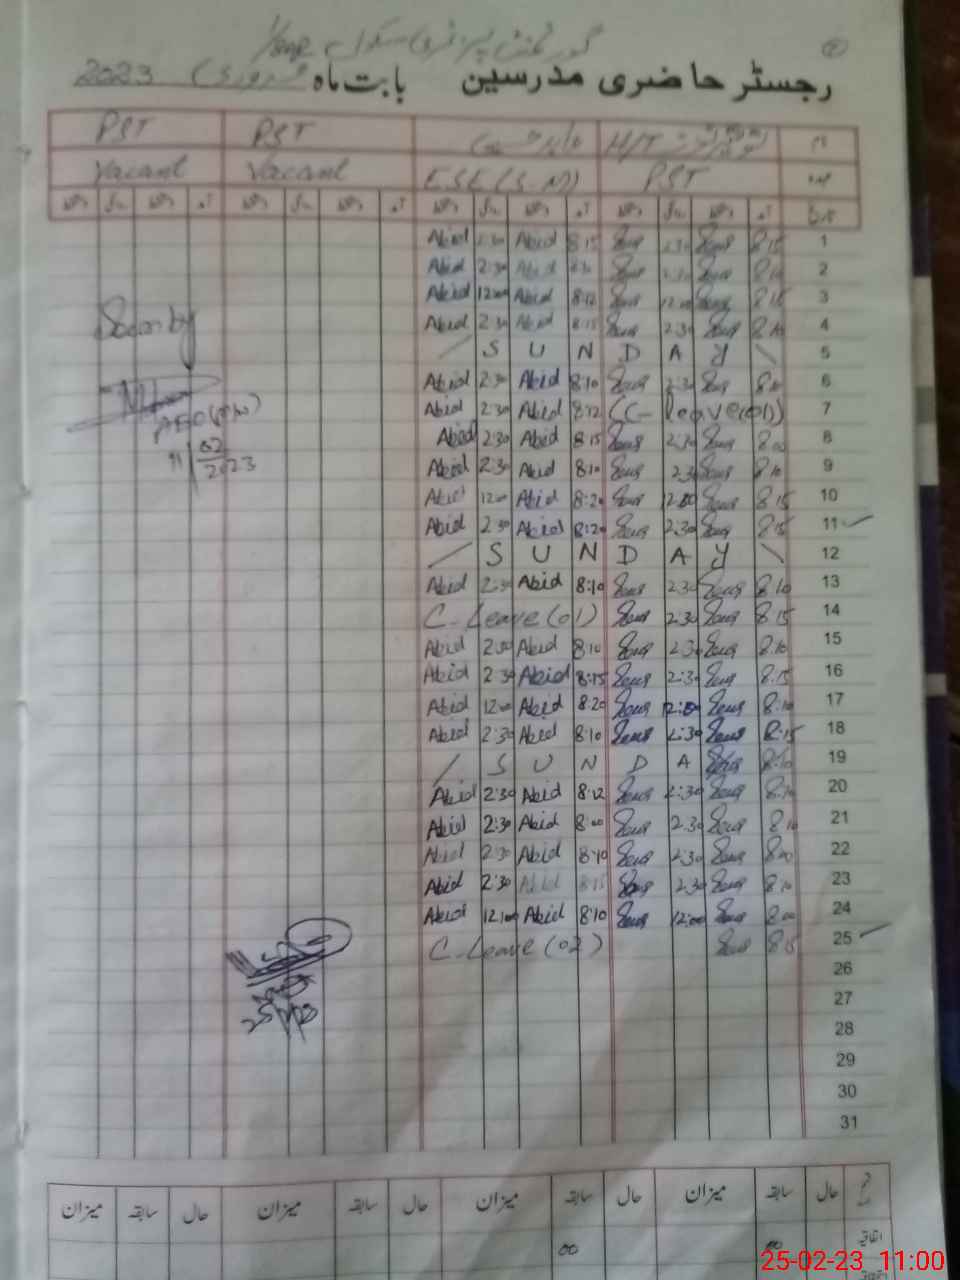 گورنمنٹ پرائمری سکول
رجسٹر حاضری مدرسین بابت ماہ فروری 2023
نام H/T PST PST
عہدہ PST E.S.E (S-M) Vacant Vacant
تاریخ آمد دستخط روانگی دستخط آمد دستخط روانگی دستخط آمد دستخط روانگی دستخط آمد دستخط روانگی دستخط
1 8:15 2:30 8:15 Abid 2:30 Abid
2 2:30 Abid 2:30 Abid
3 8:15 12:00 8:12 Abid 12:00 Abid
4 8:10 2:30 8:15 Abid 2:30 Abid
5 / S U N D A Y \
6 2:30 8:10 Abid 2:30 Abid
7 C-leave(01) 8:12 Abid 2:30 Abid
8 8:00 2:30 8:15 Abid 2:30 Abid
9 8:10 2:30 8:10 Abid 2:30 Abid
10 8:15 12:00 8:20 Abid 12:00 Abid
11 8:15 2:30 8:20 Abid 2:30 Abid
12 / S U N D A Y \
13 8:10 2:30 8:10 Abid 2:30 Abid
14 8:15 2:30 C-Leave (01)
15 8:10 2:30 8:10 Abid 2:30 Abid
16 8:15 2:30 8:15 Abid 2:30 Abid
17 8:10 12:00 8:20 Abid 12:00 Abid
18 8:15 2:30 8:10 Abid 2:30 Abid
19 8:10 / S U N D A
20 8:10 2:30 8:12 Abid 2:30 Abid
21 8:10 2:30 8:00 Abid 2:30 Abid
22 8:00 2:30 8:10 Abid 2:30 Abid
23 8:10 2:30 8:15 Abid 2:30 Abid
24 8:00 12:00 8:10 Abid 12:00 Abid
25 8:15 C-Leave (02)
26
27
28
29
30
31
Seen by
AEO
11/02/2023
حال سابقہ میزان حال سابقہ میزان حال سابقہ میزان حال سابقہ میزان
اتفاقیہ 00 00
25-02-23 11:00